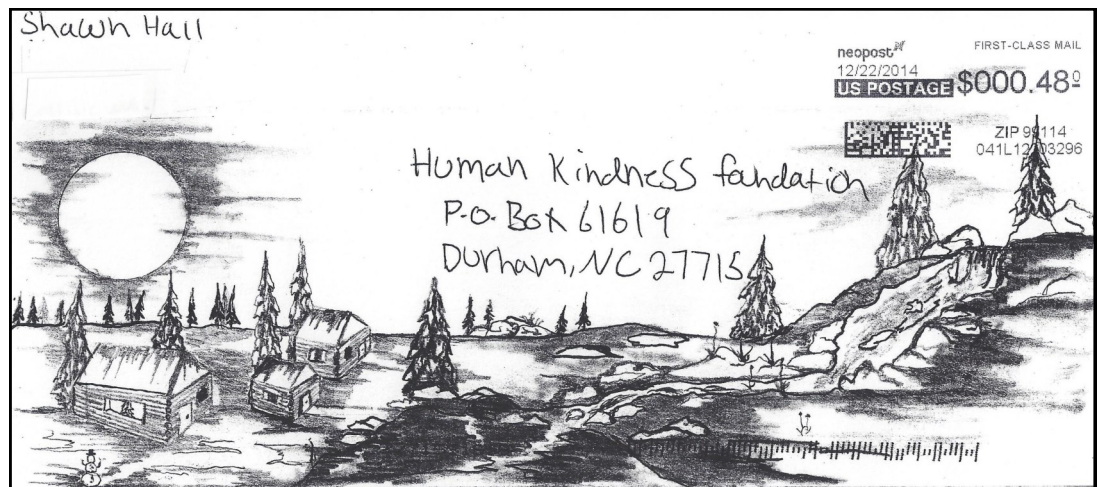 Shawn Hall
neopost
FIRST-CLASS MAIL
12/22/2014
US POSTAGE $000.48⁰
ZIP 99114
041L12203296
Human Kindness foundation
P.O. Box 61619
Durham, NC 27715